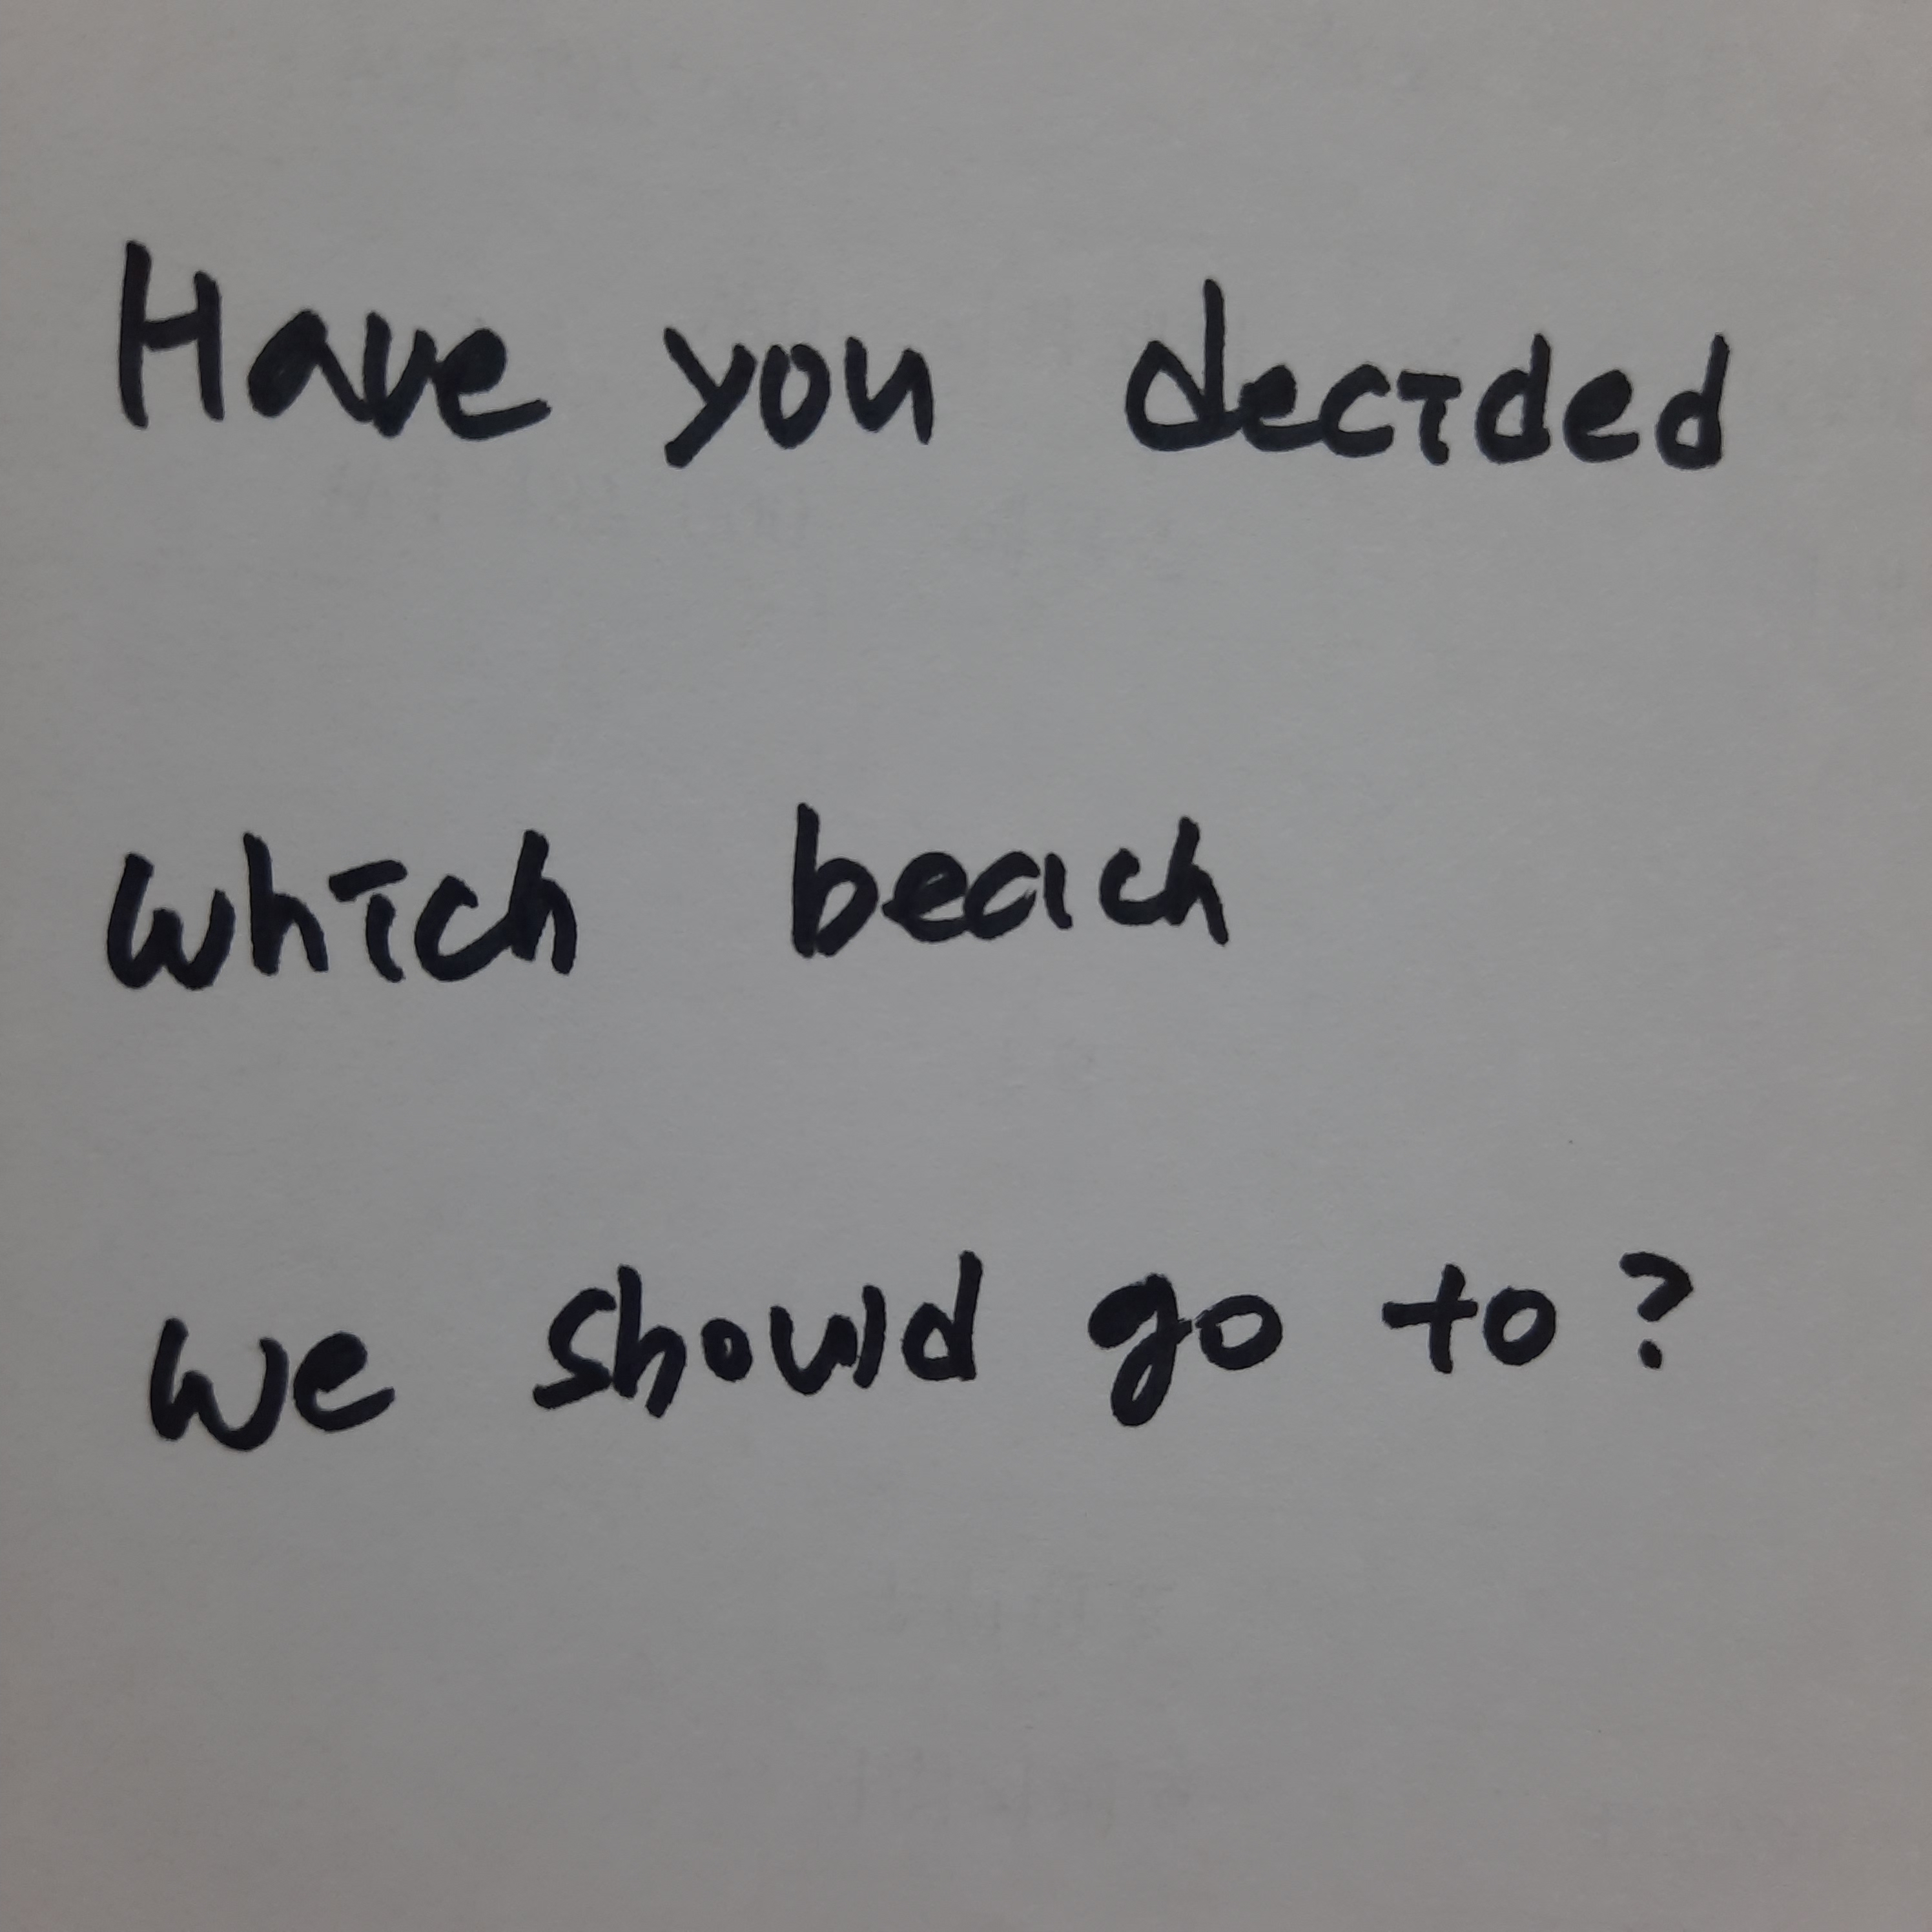 Have you decided
which beach
we should go to?